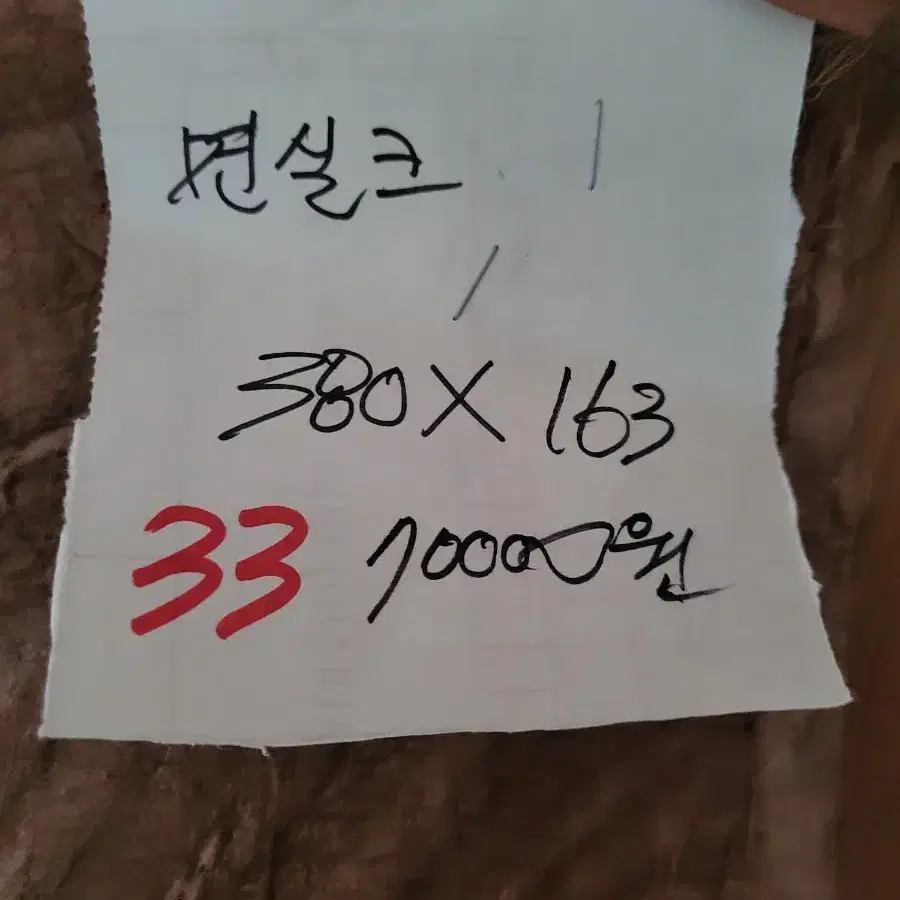 면실크
380X163
33 70000원